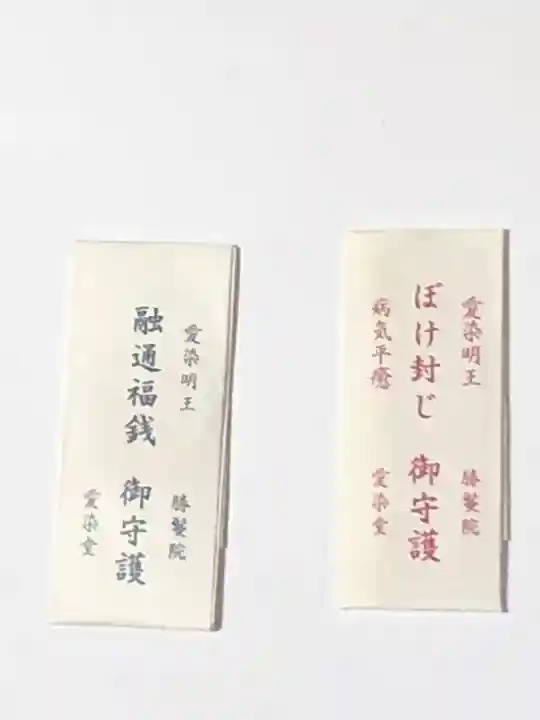 愛染明王
融通福銭 御守護
勝鬘院
愛染堂
愛染明王
ぼけ封じ 御守護
病気平癒
勝鬘院
愛染堂